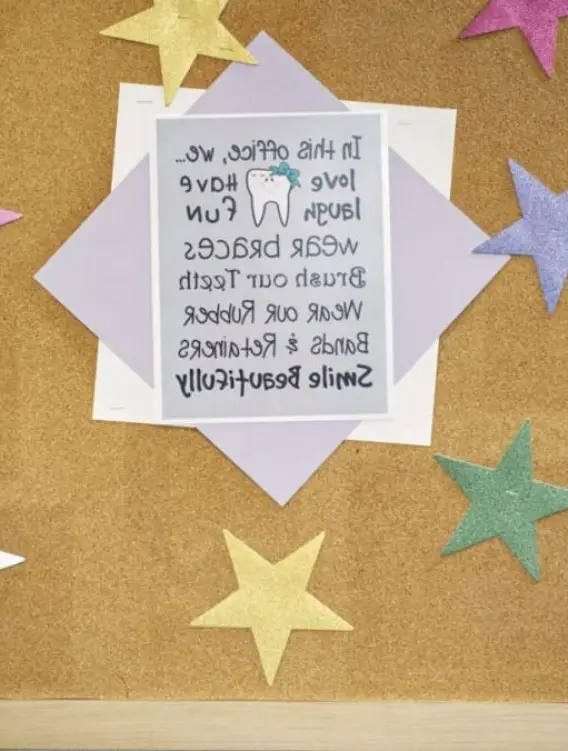 In this office, we...
love Have
laugh Fun
wear braces
Brush our Teeth
Wear our Rubber
Bands & Retainers
Smile Beautifully